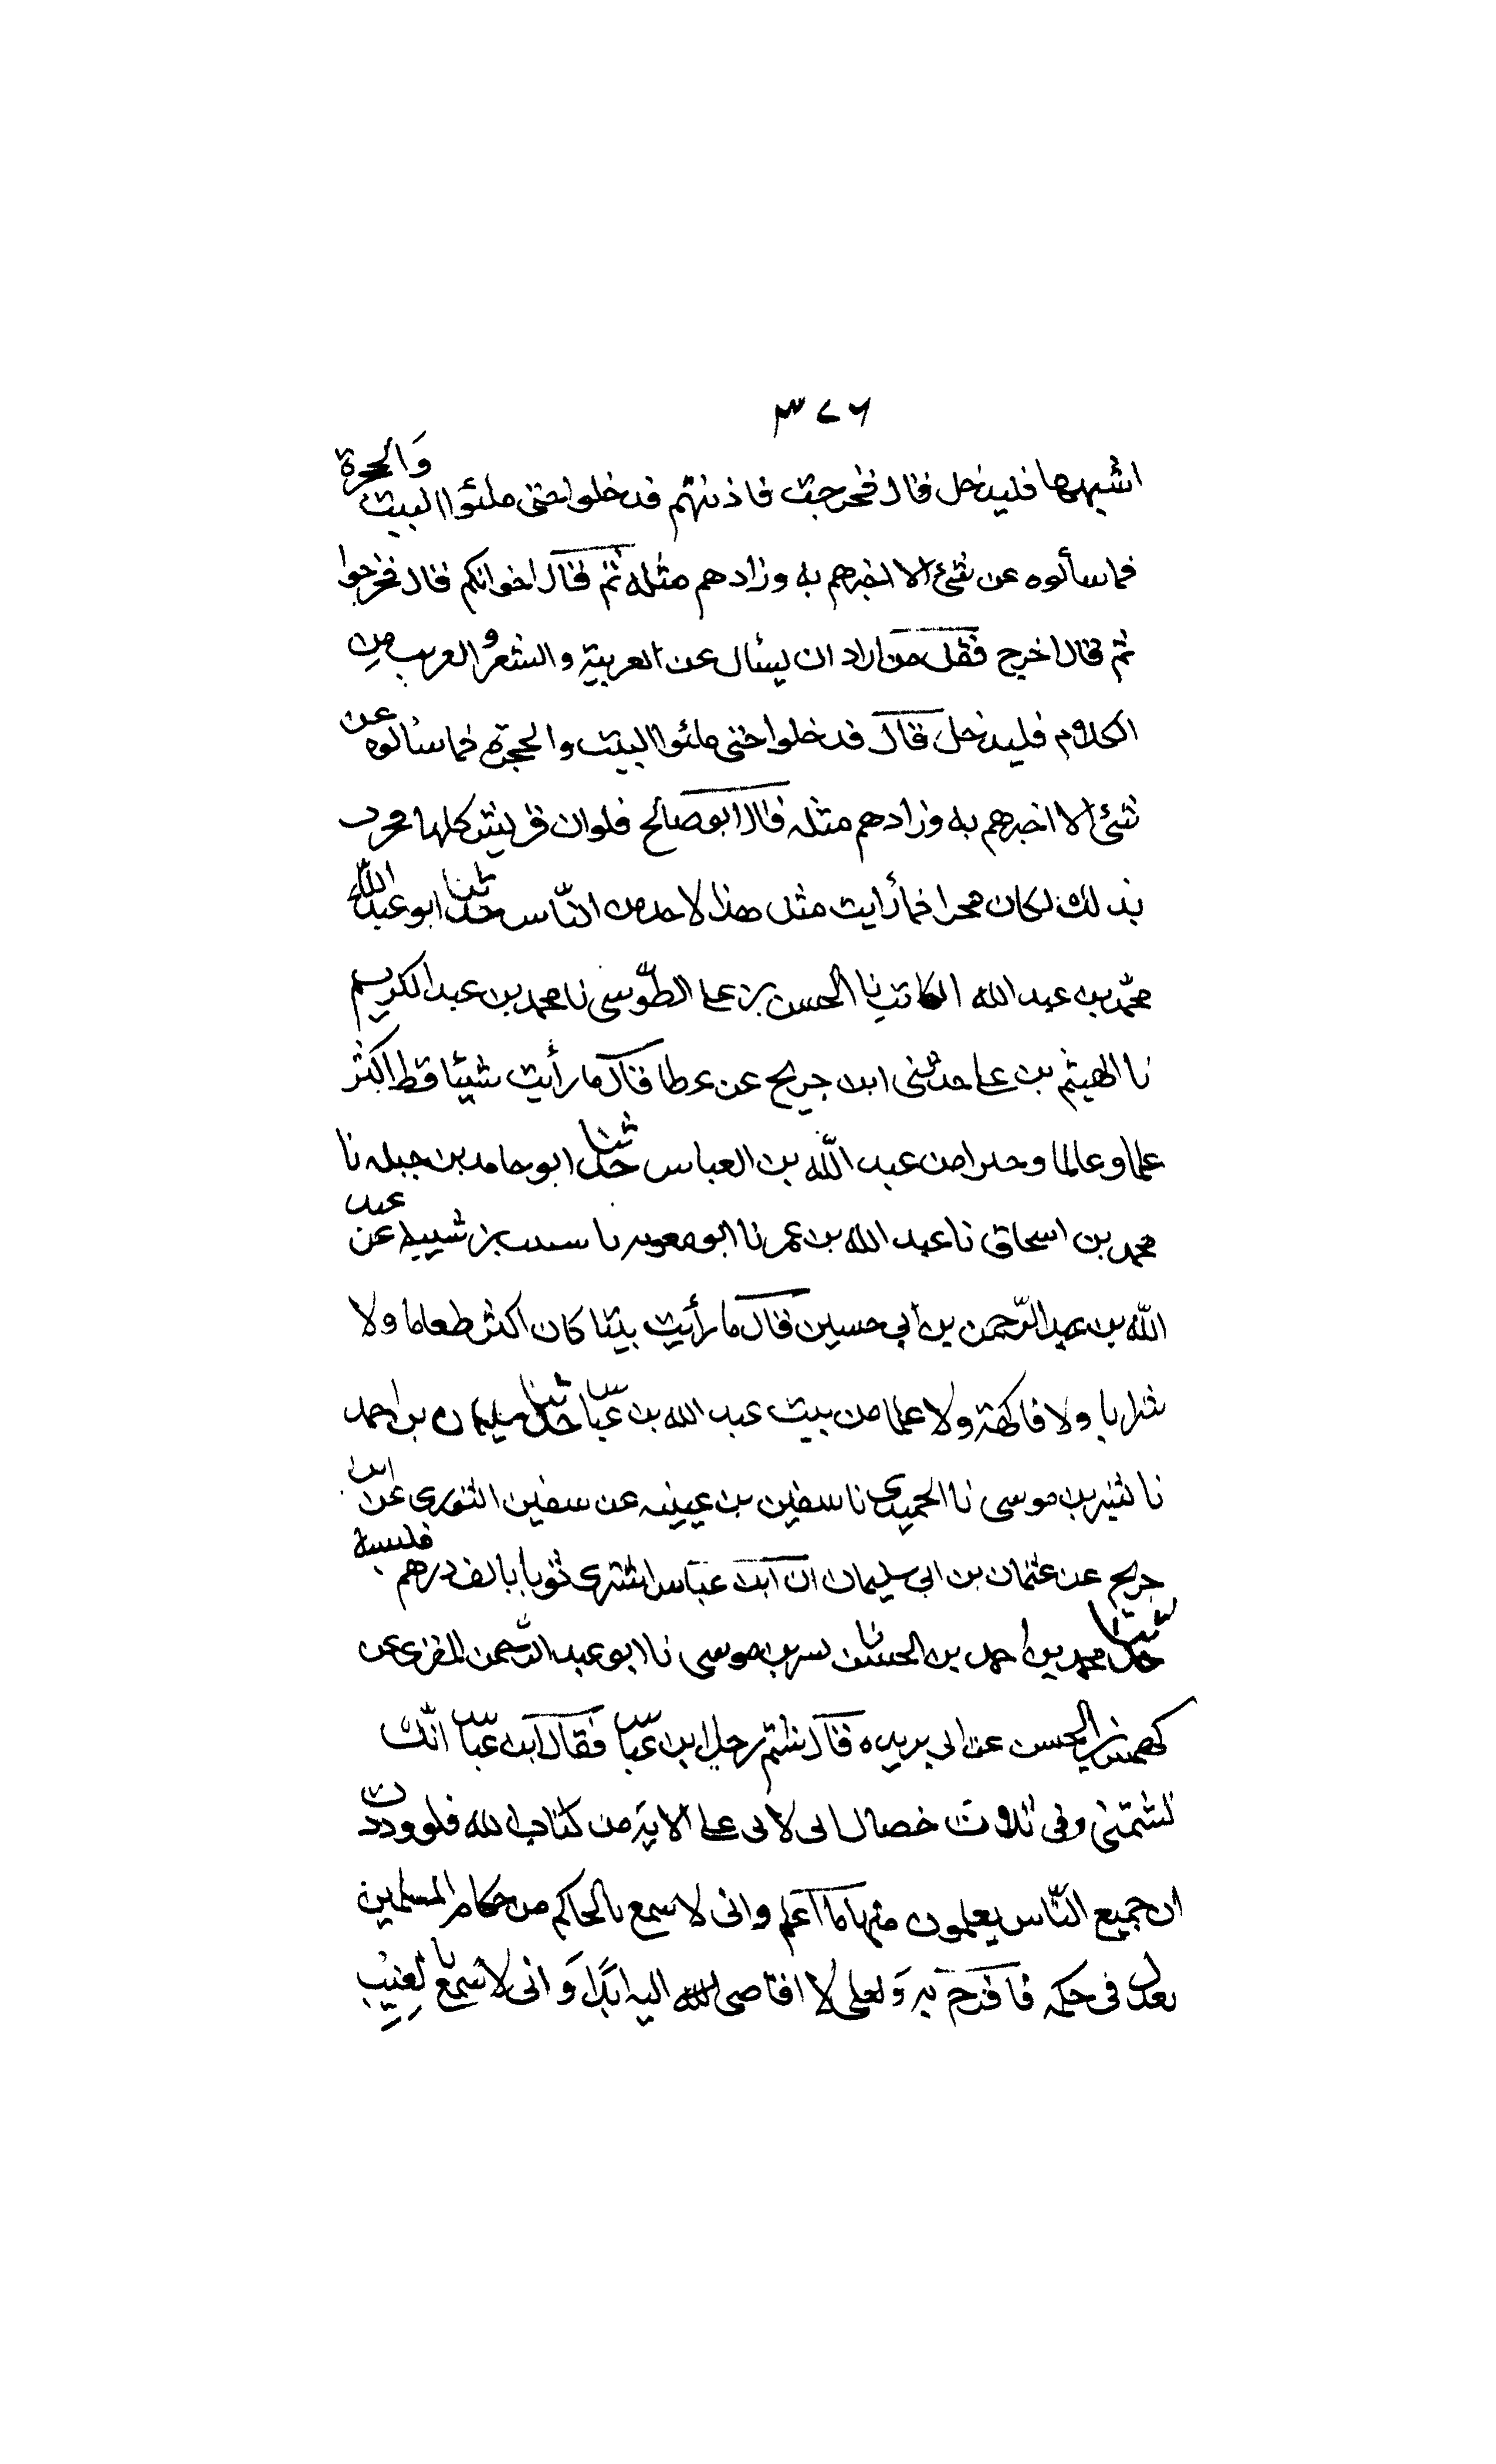 ٣٧٦
اشبهها فليدخل قال فخرجت فاذنتهم فدخلوا حتى ملئوا البيت والحجرة
فما سألوه عن شئ الا اخبرهم به وزادهم مثله ثم قال اخوانكم قال فخرجوا
ثم قال اخرج فقل من اراد ان يسأل عن العربية والشعر و العريب من
الكلام فليدخل قال فدخلوا حتى ملئوا البيت والحجرة فما سألوه عن
شئ الا اخبرهم به وزادهم مثله قال ابو صالح فلو ان قريش كلها فخرت
بذلك لكان فخرا فما رأيت مثل هذا لاحد من الناس حدثنا ابو عبد الله
محمد بن عبد الله الكاتب نا الحسن بن على الطوسى نا محمد بن عبد الكريم
نا الهيثم بن على حدثنى ابن جريج عن عطا قال ما رأيت شيئا قط اكثر
علما وعالما وحدرا من عبد الله بن العباس حدثنا ابو حامد بن جبله نا
محمد بن اسحاق نا عبد الله بن عمر نا ابو معويه نا بن شيبه عن عبد
الله بن عبد الرحمن بن أبي حسين قال ما رأيت بيتا كان اكثر طعاما ولا
شرابا ولا فاكهة ولا علما من بيت عبد الله بن عباس حدثنا سليمان بن احمد
نا بشر بن موسى نا الحميدى نا سفين بن عيينه عن سفين الثورى عن ابن
جريج عن عثمان بن ابى سليمان ان ابن عباس اشترى ثوبا بالف درهم فلبسه
حدثنا محمد بن احمد بن الحسن نا بشر بن موسى نا ابو عبد الرحمن المقرى عن
كهمس بن الحسن عن ابى بريده قال شتم رجل ابن عباس فقال ابن عباس انك
لتشتمنى وفى ثلاث خصال انى لاتى على الاية من كتاب الله فلوددت
ان جميع الناس يعلمون منها ما اعلم وانى لاسمع بالحاكم من حكام المسلمين
يعدل فى حكمه فافرح به ولعلى لا اقاضى اليه ابدا وانى لاسمع بالغيث